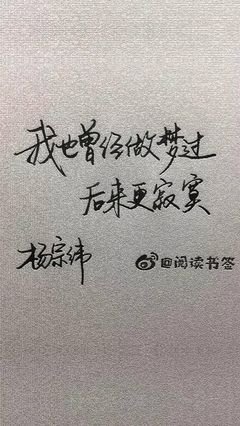 我也曾经做梦过
后来更寂寞
杨宗纬
@阅读书签